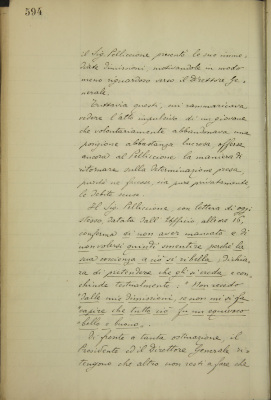 394
il Sig. Pellicione presentò le sue immediate dimissioni, motivandole in modo
meno riguardoso verso il Direttore Ge-
nerale.
Tuttavia questi, cui rammaricava
vedere l'atto impulsivo di un giovane
che volontariamente abbandonava una
posizione abbastanza lucrosa, offerse
ancora al Pellicione la maniera di
ritornare sulla determinazione presa,
purchè ne facesse, sia pur privatamente
le debite scuse.
Il Sig. Pellicione con lettera di oggi
stesso, datata dall'Ufficio alle ore 16,
conferma di non aver mancato e di
non volersi quindi smentire perchè la
sua coscienza a ciò si ribella, dichia-
ra di pretendere che gli si creda e con-
chiude testualmente: "Non recedo
dalle mie dimissioni, se non mi si fa
capire che tutto ciò fu un equivoco
bello e buono.
Di fronte a tanta ostinazione il
Presidente ed il Direttore Generale ri-
tengono che altro non resti a fare che